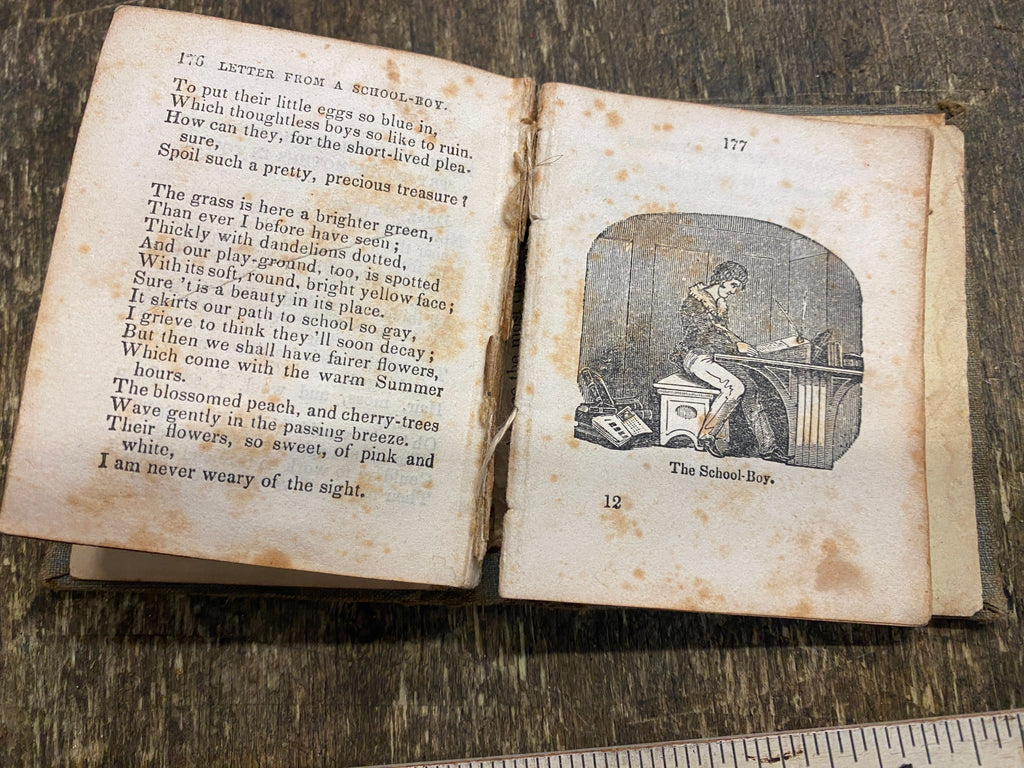 176 LETTER FROM A SCHOOL-BOY.
To put their little eggs so blue in,
Which thoughtless boys so like to ruin.
How can they, for the short-lived plea-
sure,
Spoil such a pretty, precious treasure?
The grass is here a brighter green,
Than ever I before have seen;
Thickly with dandelions dotted,
And our play-ground, too, is spotted
With its soft, round, bright yellow face;
Sure 't is a beauty in its place.
It skirts our path to school so gay,
I grieve to think they 'll soon decay;
But then we shall have fairer flowers,
Which come with the warm Summer
hours.
The blossomed peach, and cherry-trees
Wave gently in the passing breeze.
Their flowers, so sweet, of pink and
white,
I am never weary of the sight.
177
The School-Boy.
12